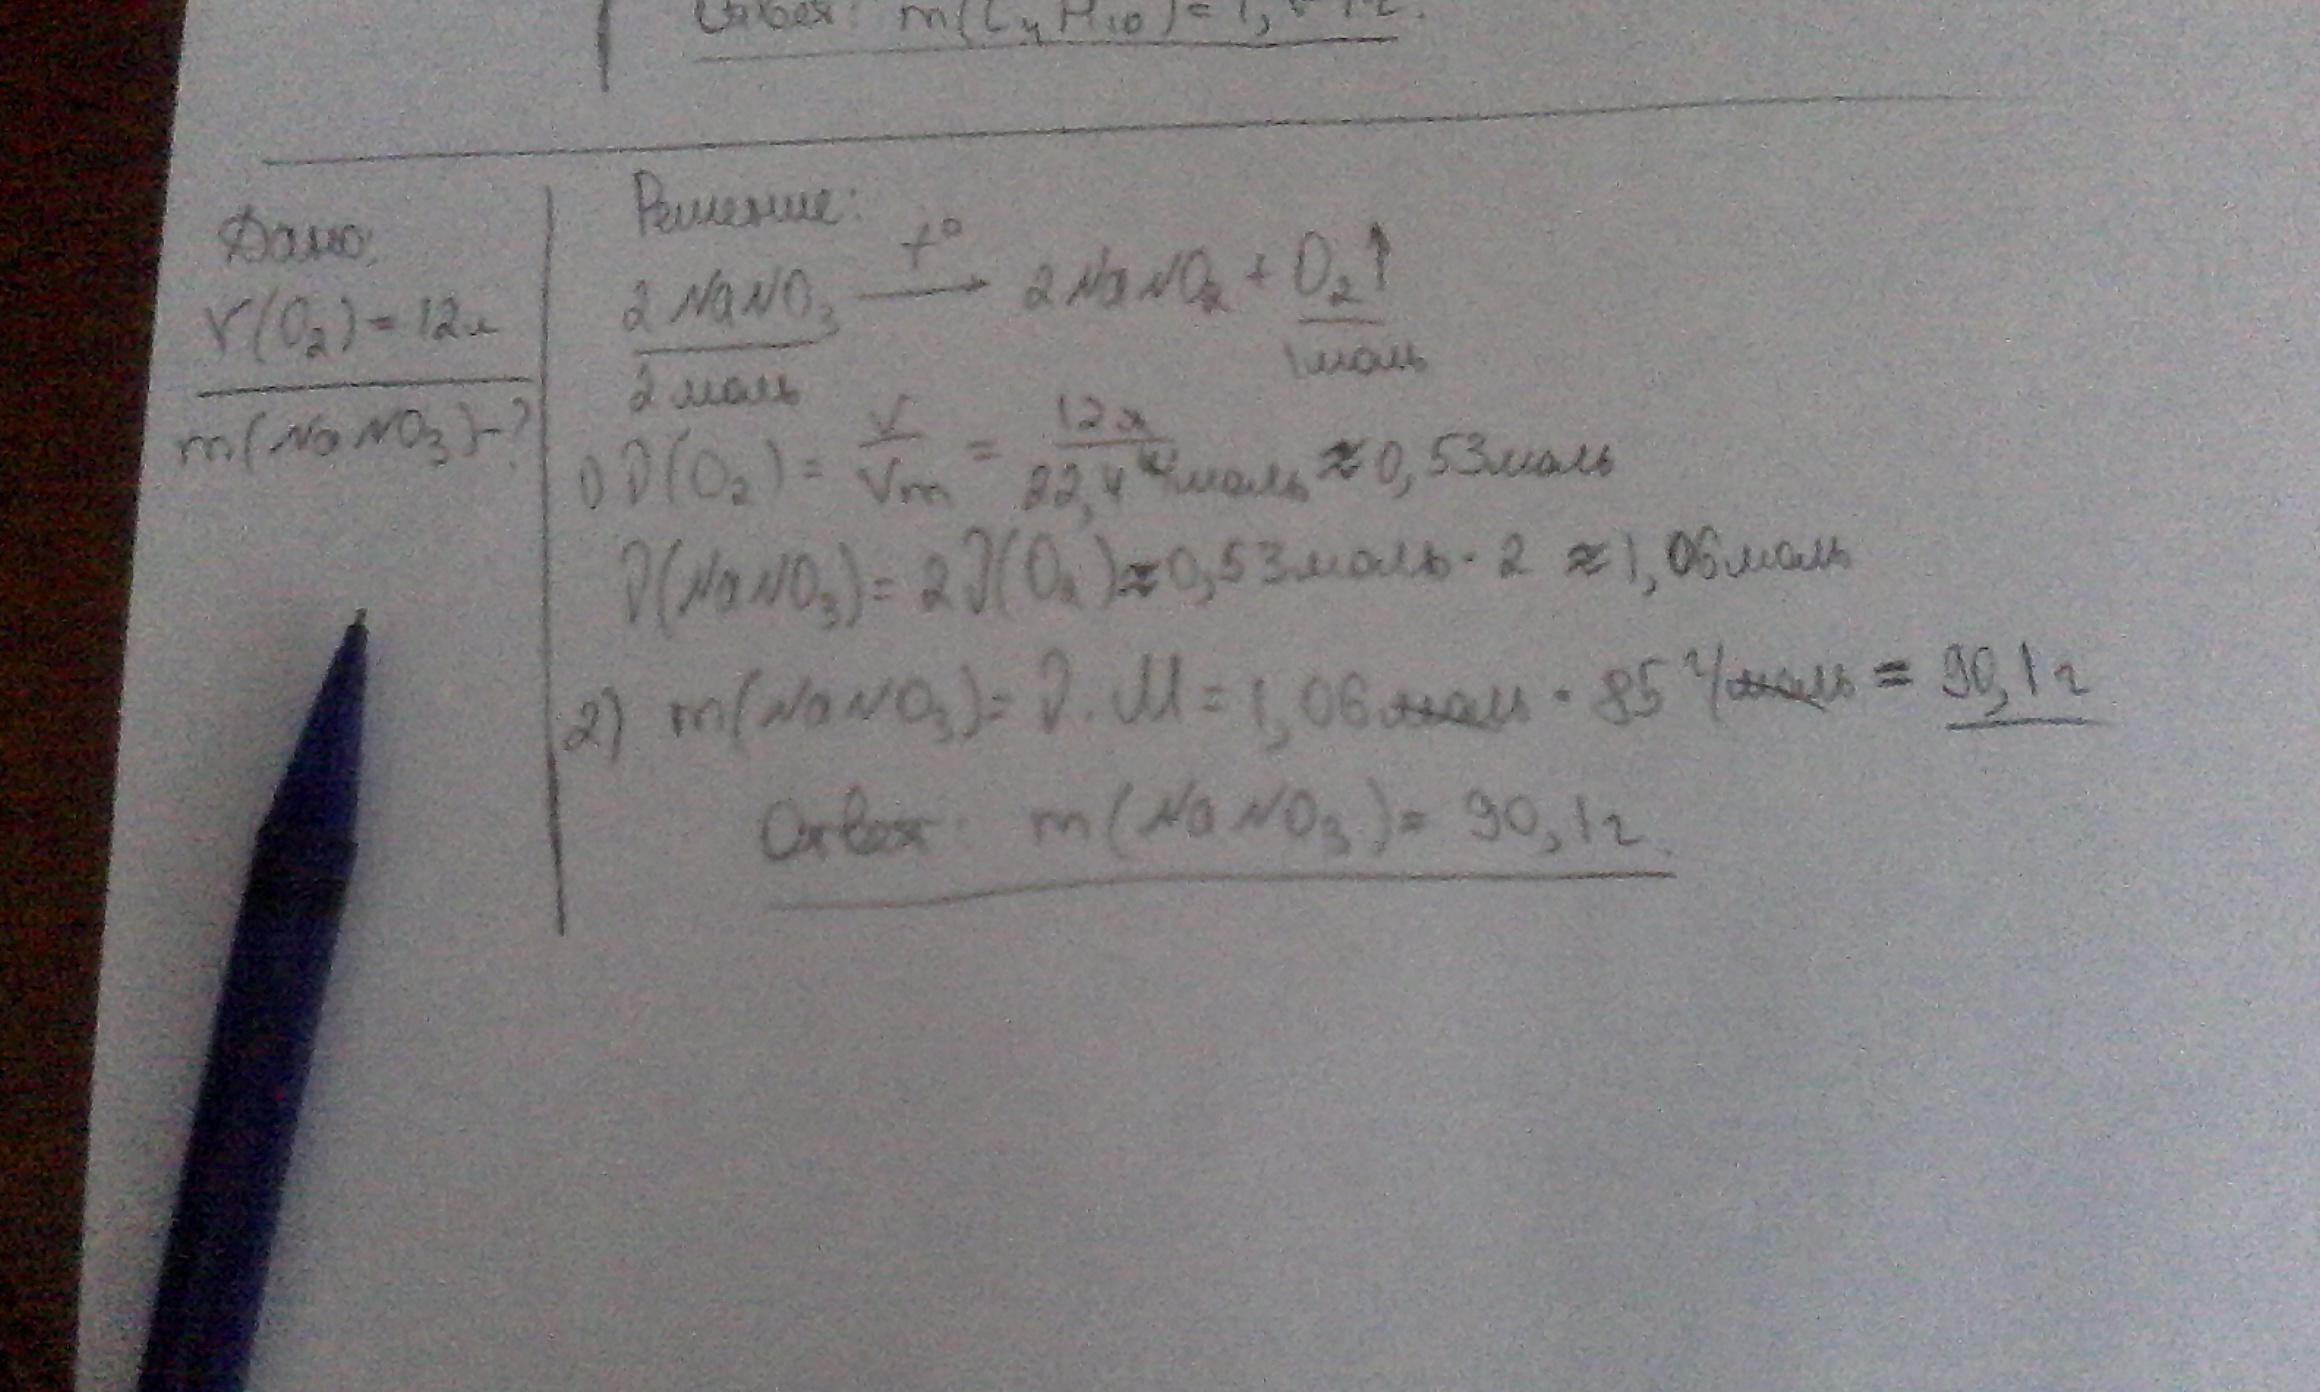 Ответ: m(C₄H₁₀) = 1,
Дано:
V(O₂) = 12л
m(NaNO₃) - ?
Решение:
2NaNO₃ —t°→ 2NaNO₂ + O₂↑
2 моль 1 моль
1) ν(O₂) = V/Vm = 12л/22,4 л/моль ≈ 0,53 моль
ν(NaNO₃) = 2ν(O₂) ≈ 0,53 моль · 2 ≈ 1,06 моль
2) m(NaNO₃) = ν · M = 1,06 моль · 85 г/моль = 90,1 г
Ответ: m(NaNO₃) = 90,1 г.